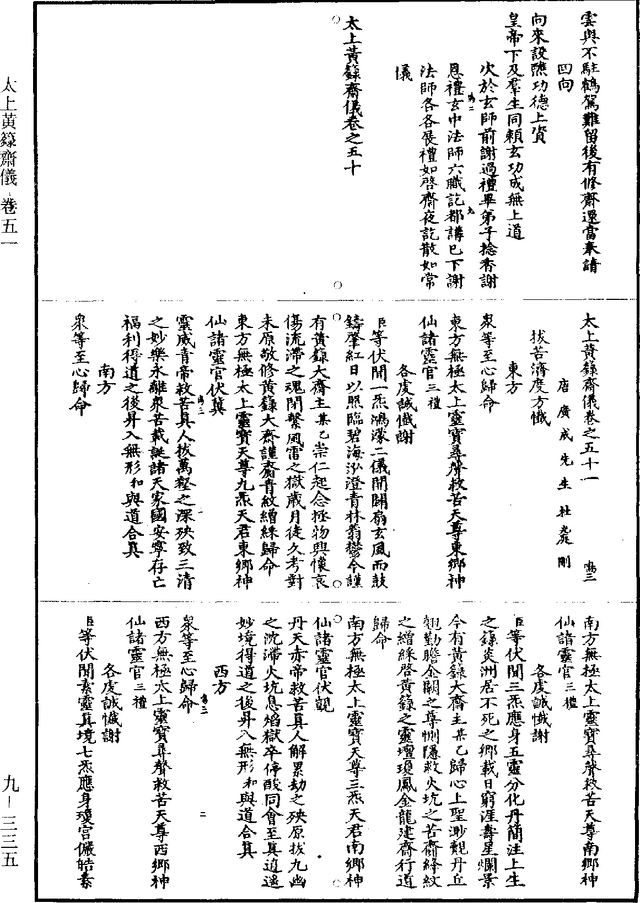 雲輿不駐鶴駕難留後有修齋還當奉請
回向
向來設醮功德上資
皇帝下及羣生同賴玄功成無上道
次於玄師前謝過禮畢弟子捻香謝
恩禮玄中法師六職訖都講已下謝
法師各各長禮如啓齋夜訖散如常
儀
太上黃籙齋儀卷之五十
太上黃籙齋儀卷之五十一
唐廣成先生杜光庭刪
拔苦濟度方懺
東方
衆等至心歸命
東方無極太上靈寶尋聲救苦天尊東鄉神
仙諸靈官三禮
各虔誠懺謝
臣等伏聞一炁鴻濛二儀開闢扇玄風而鼓
鑄肇紅日以照臨碧海泓澄青林蓊鬱今謹
有黃籙大齋主某乙崇仁起念拯物興懷哀
傷流滯之魂閉繫風雷之獄歲月徒久考對
未原敬修黃籙大齋謹齎青紋繒綵歸命
東方無極太上靈寶天尊九炁天君東鄉神
仙諸靈官伏冀
靈威青帝救苦真人拔萬劫之深殃致三清
之妙樂永離衆苦載誕諸天家國安寧存亡
福利得道之後昇入無形和與道合真
南方
衆等至心歸命
南方無極太上靈寶尋聲救苦天尊南鄉神
仙諸靈官三禮
各虔誠懺謝
臣等伏聞三炁應身五靈分化丹簡注上生
之籙炎洲居不死之鄉載日窮涯壽星爛景
今有黃籙大齋主某乙歸心上聖渺覿丹丘
翹勤瞻金闕之尊惻隱救火坑之苦齋絳紋
之繒綵啓黃籙之靈壇瓊鳳金龍建齋行道
歸命
南方無極太上靈寶天尊三炁天君南鄉神
仙諸靈官伏覬
丹天赤帝救苦真人解累劫之殃原拔九幽
之沈滯火坑息焰獄卒停酸同會至真逍遥
妙境得道之後昇入無形和與道合真
西方
衆等至心歸命
西方無極太上靈寶尋聲救苦天尊西鄉神
仙諸靈官三禮
各虔誠懺謝
臣等伏聞素靈真境七炁應身瓊宫儼皓素
太上黃籙齋儀·卷五一
九—三三五